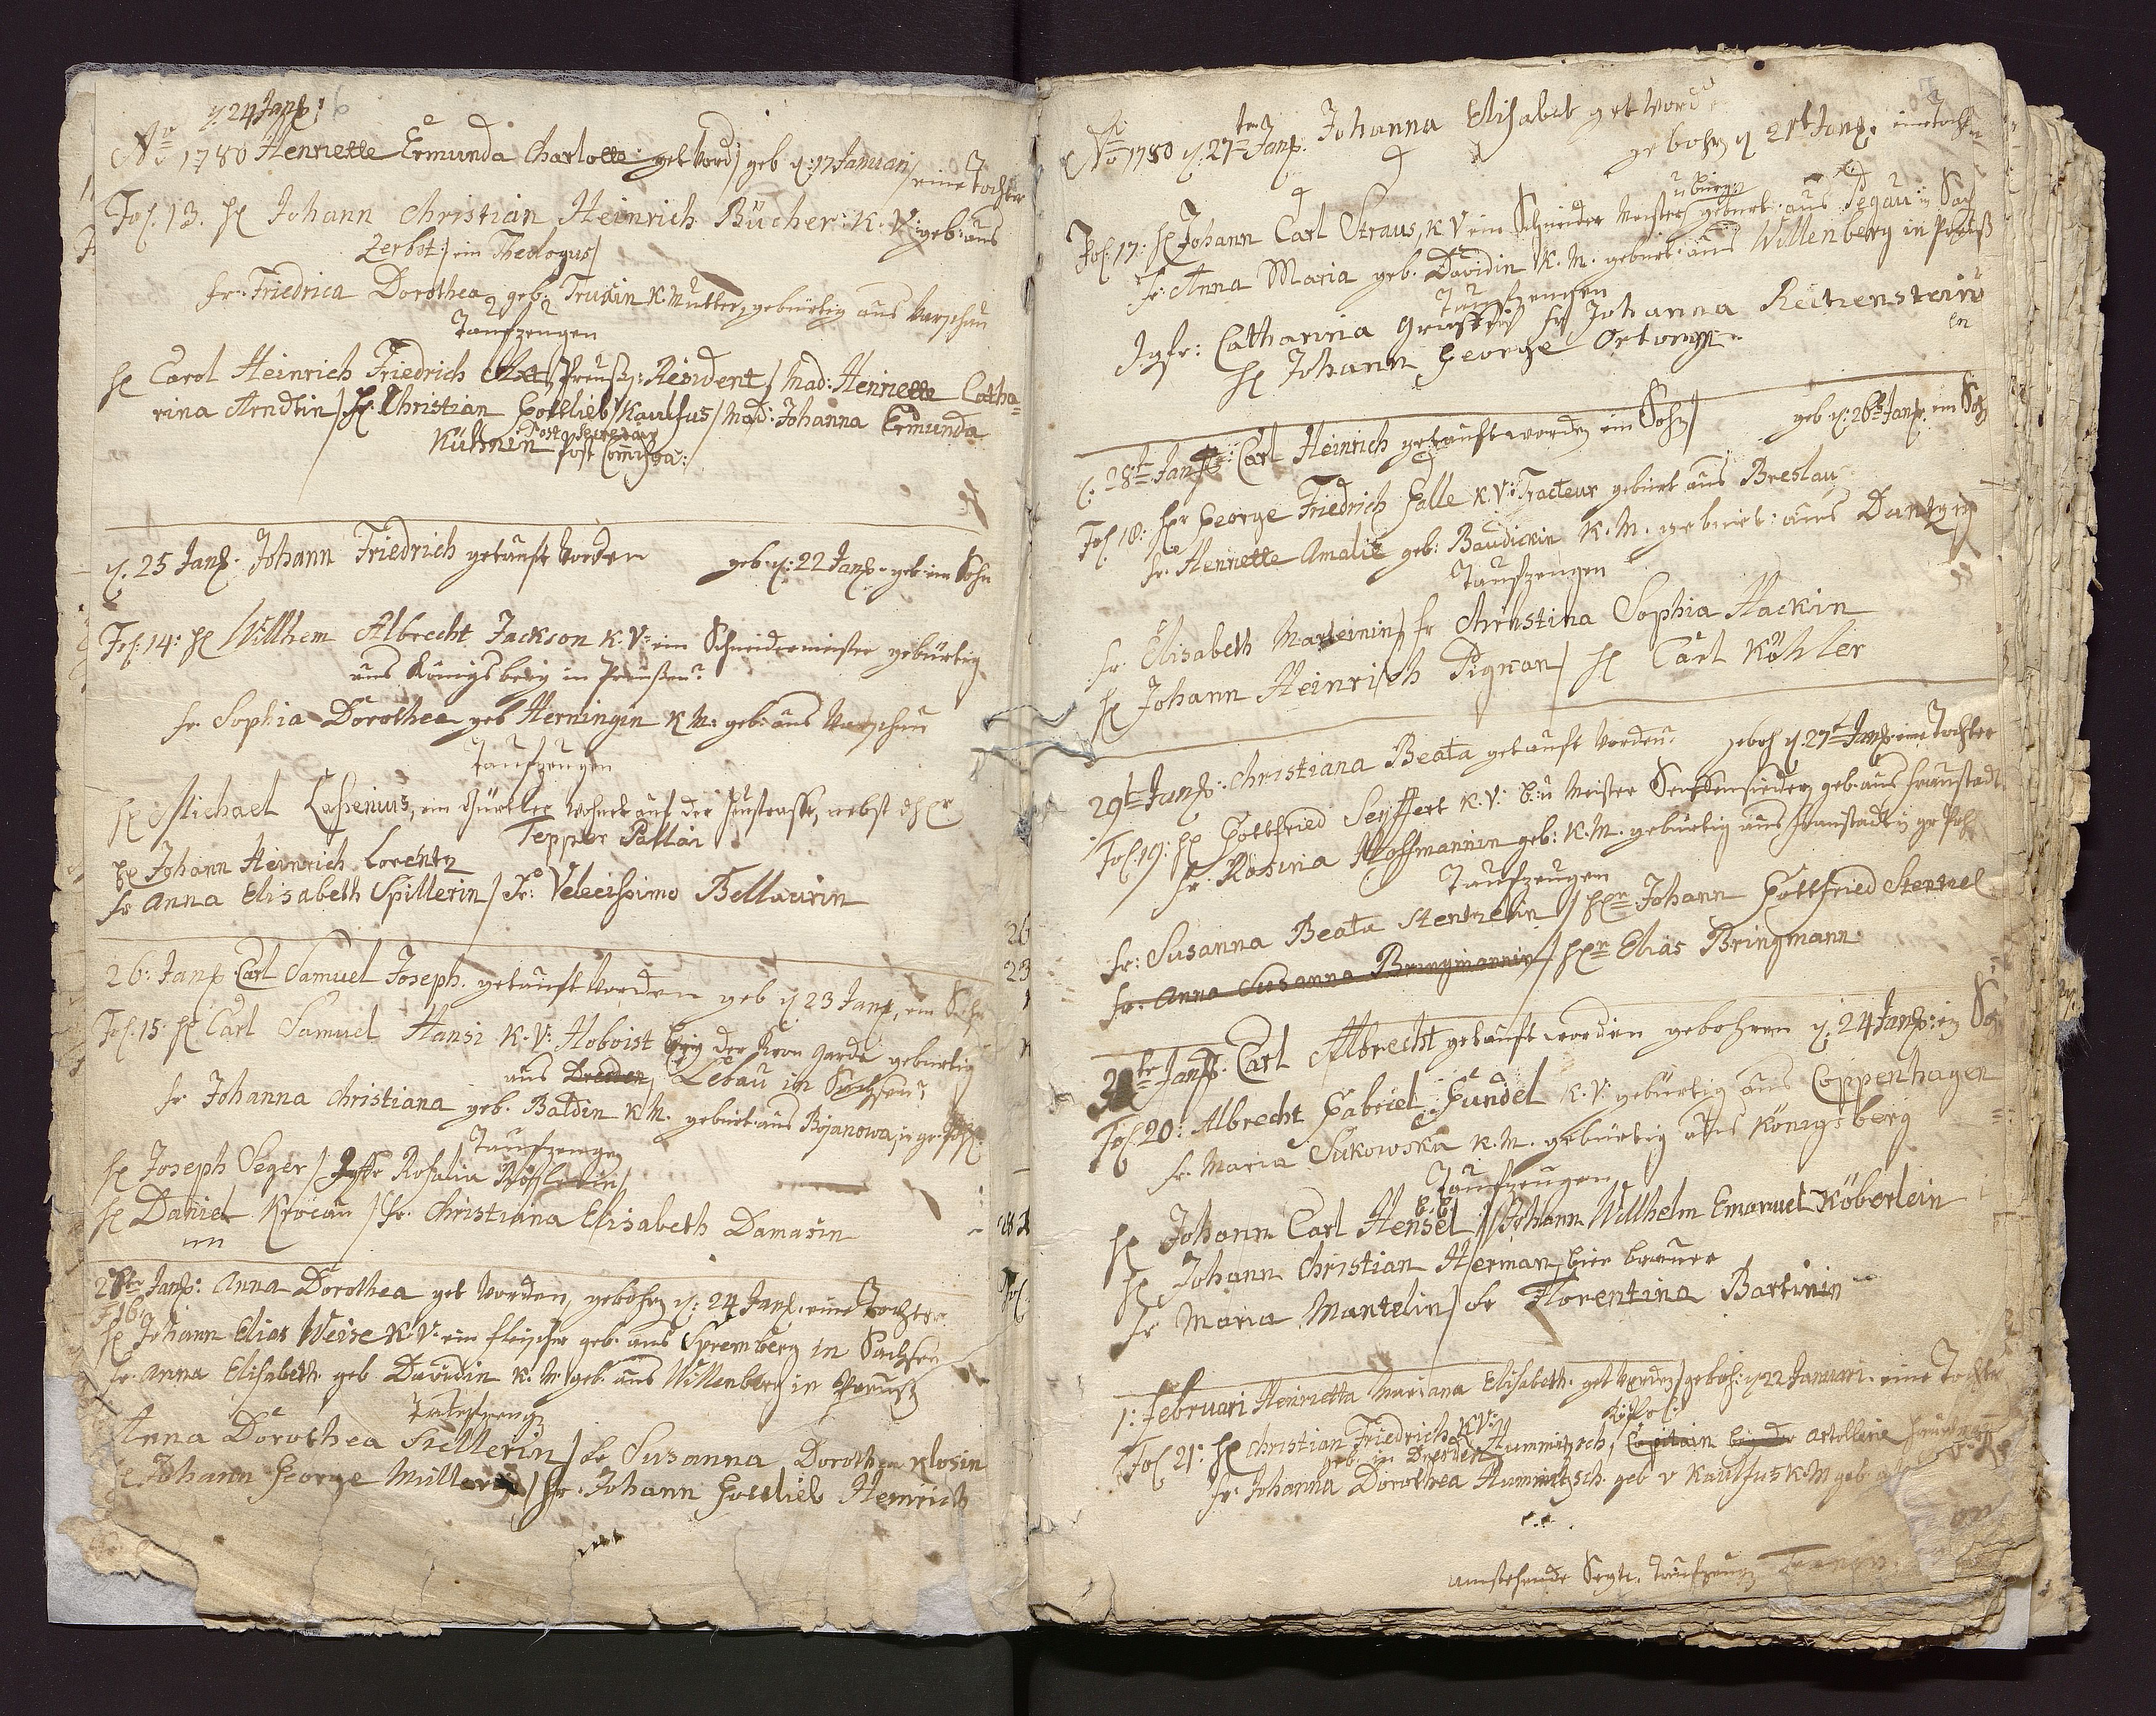 d. 24 Janr:
No 1780 Henriette Ermunda Charlotte get Word, geb d: 17 Januari, eine Tochter
Fol. 13. H Johann Christian Heinrich Bücher: K. V: geb: aus
Zerbst, ein Theologus
fr: Friedrica Dorothea geb: K. Mutter, gebürtig aus Warschau
Taufzeugen
H Carol Heinrich Friedrich Axt, Preuß: Resident / Mad: Henriette Catha=
rina Arndtin / H: Christian Gottlieb Kaulfus / Mad: Johanna Ermunda
Post Secretair
Kühnin Post
d. 25 Janr: Johann Friedrich getauft Worden geb d: 22 Janr. ein Sohn
Fol: 14: H Willhem Albrecht Jackson K. V: ein Schneidermeister gebürtig
aus Königsberg in Preußen
fr. Sophia Dorothea geb Herningin K M: geb: aus Warschau
Taufzeugen
H Michael ein Gürtler wohnt auf der nebst
H Johann Heinrich Lorentz Tepper Pallai
fr Anna Elisabeth Spillerin / Fr: Bellaurin
26: Janr Carl Samuel Joseph. getauft Worden geb d 23 Janr, ein Sohn
Fol. 15 H Carl Samuel Hansi K. V: Hoboist bey der Kron Garde gebürtig
aus Dresden, Lebau in Sachsen
fr Johanna Christiana geb. Baldin K M. gebürt: aus Bojanowa, in gr.
Taufzeugen
H Joseph Seger / Jgfr Rosalia
H Daniel Krocau / fr. Christiana Elisabeth Damasin
Janr: Anna Dorothea get Worden, gebohrn d: 24 Janr. eine Tochter
F 16
H Johann Elias Weise K. V. ein Fleischer geb. aus Spremberg in Sachsen
fr. Anna Elisabeth geb Davidin K. M geb. aus Willenberg in Preuß
Taufzeug
Anna Dorothea Stellerin / fr Susanna Dorothea Klosin
H Johann George Müller / Hr. Johann Gottlieb Heinrich
No 1780 d. 27ten Janr. Johanna Elisabet get Word
gebohrn d 21t Janr. eine Tochter
u bürger
Fol. 17: H Johann Carl Straus, K V ein Schneider Meister gebürt: aus Pegau in Sach
fr Anna Maria geb. Davidin K. M. gebürt: aus Willenberg in Preuß
Taufzeugen
Jgfr: Catharina fr Johanna Reitzenstein
H Johann George
d. 28t Janr: Carl Heinrich getauft worden ein Sohn / geb d: 26t Janr. ein Sohn
Fol 18: Hr George Friedrich Galle K. V: Tracteur gebürt aus Breslau
fr. Henriette Amalie geb: Baudickin K. M. gebürt: aus Dantzig
Taufzeugen
fr. Elisabeth Marteinin / fr Christina Sophia Hackin
H Johann Heinrich Pignan / H Carl Köhler
29t Janr: Christiana Beata getauft Worden geboh d. 27t Janr. eine Tochter
Fol. 19: H Gottfried Seyffert K. V: b: u Meister Seiffensieder, geb. aus Fraustadt
fr. Rosina Hoffmannin geb: K. M. gebürtig aus Fraustadt in gr Pohl
Taufzeugen
fr: Susanna Beata Stentzelin / Hrn Johann Gottfried Stentzel
fr. Anna Susanna Bringmannin / Hrn Elias Bringmann
Janr. Carl Albrecht getauft worden gebohren d: 24 Janr: ein So
Fol. 20: Albrecht Gabriel Gundel K. V: gebürtig aus Coppenhagen
fr. Maria Sukowska K. M. gebürtig aus Königsberg
Taufzeugen
H Johann Carl Hensel / Johann Willhelm Emanuel Köberlein
H Johann Christian Herman, bier brauer
fr Maria Mantelin / fr Florentina Bartwin
1: Februari Henrietta Mariana Elisabeth. get Worden / geboh: d 22 Januari. eine Tochter
Fol 21: H Christian Friedrich K V: Hummitzsch, Capitain bey der Artellerie
geb. in Dresden
fr. Johanna Dorothea Hummitzsch. geb v Kaulfus K: M geb.
umstehende Taufzeug